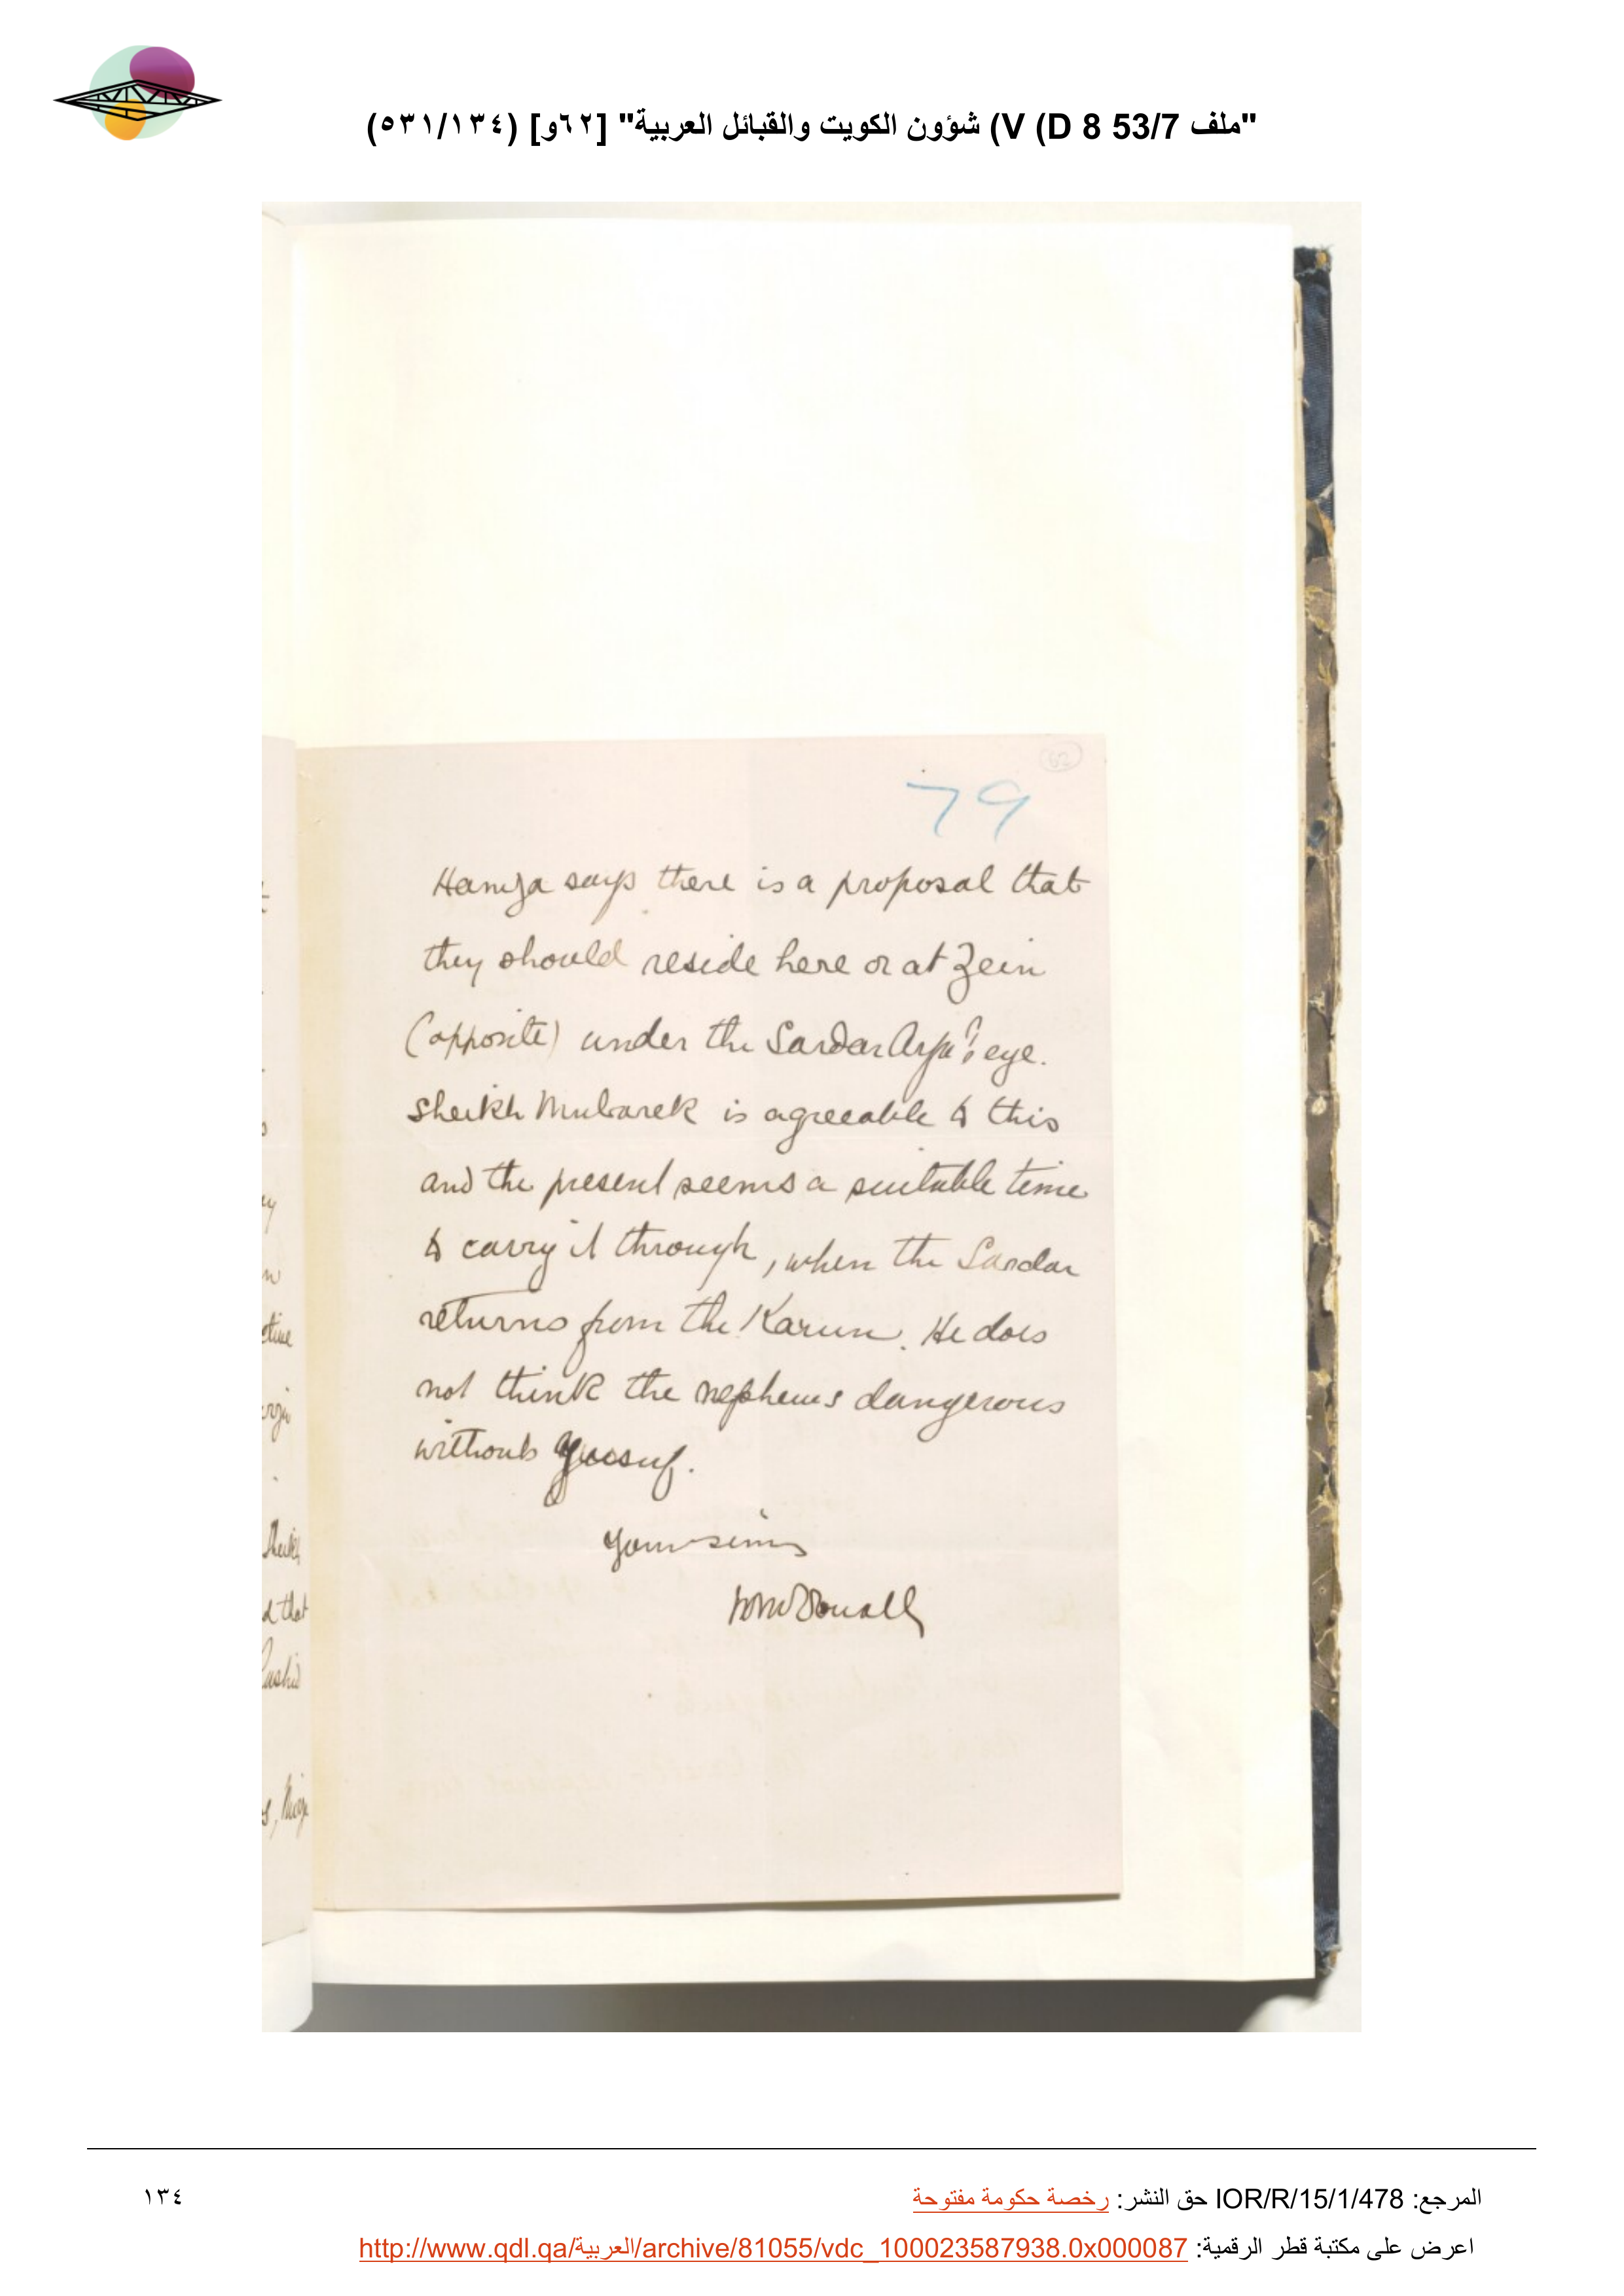 "ملف 53/7 D 8 (V) شؤون الكويت والقبائل العربية" [٦٢و] (٥٣١/١٣٤)
62
79
Hamza says there is a proposal that
they should reside here or at Zein
(opposite) under the Sardar Arfa's eye.
Sheikh Mubarek is agreeable to this
and the present seems a suitable time
to carry it through, when the Sardar
returns from the Karun. He does
not think the nephews dangerous
without Yussuf.
Yours sin
WMcDouall
etime
Sheikh
d that
Rashid
المرجع: IOR/R/15/1/478 حق النشر: رخصة حكومة مفتوحة
١٣٤
اعرض على مكتبة قطر الرقمية: http://www.qdl.qa/العربية/archive/81055/vdc_100023587938.0x000087